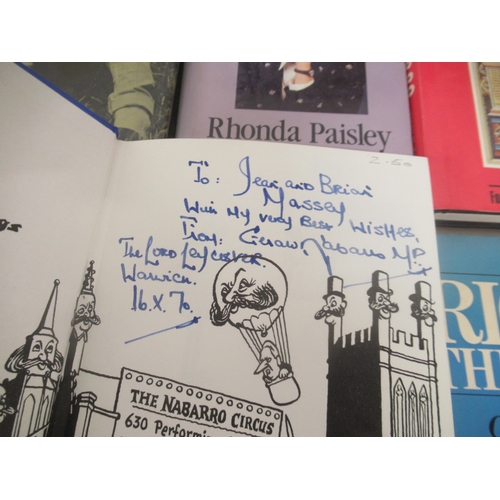 Rhonda Paisley
2.50
To: Jean and Brian
Massey
With My Very Best Wishes,
From: Gerald Nabarro MP.
The Lord Leycester
Warwick.
16.X.70.
THE NABARRO CIRCUS
630 Performi